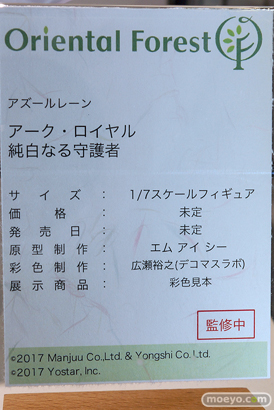 Oriental Forest
アズールレーン
アーク・ロイヤル
純白なる守護者
サイズ： 1/7スケールフィギュア
価格： 未定
発売日： 未定
原型制作： エム アイ シー
彩色制作： 広瀬裕之(デコマスラボ)
展示商品： 彩色見本
監修中
©2017 Manjuu Co.,Ltd. & Yongshi Co.,Ltd.
©2017 Yostar, Inc.
moeyo.com